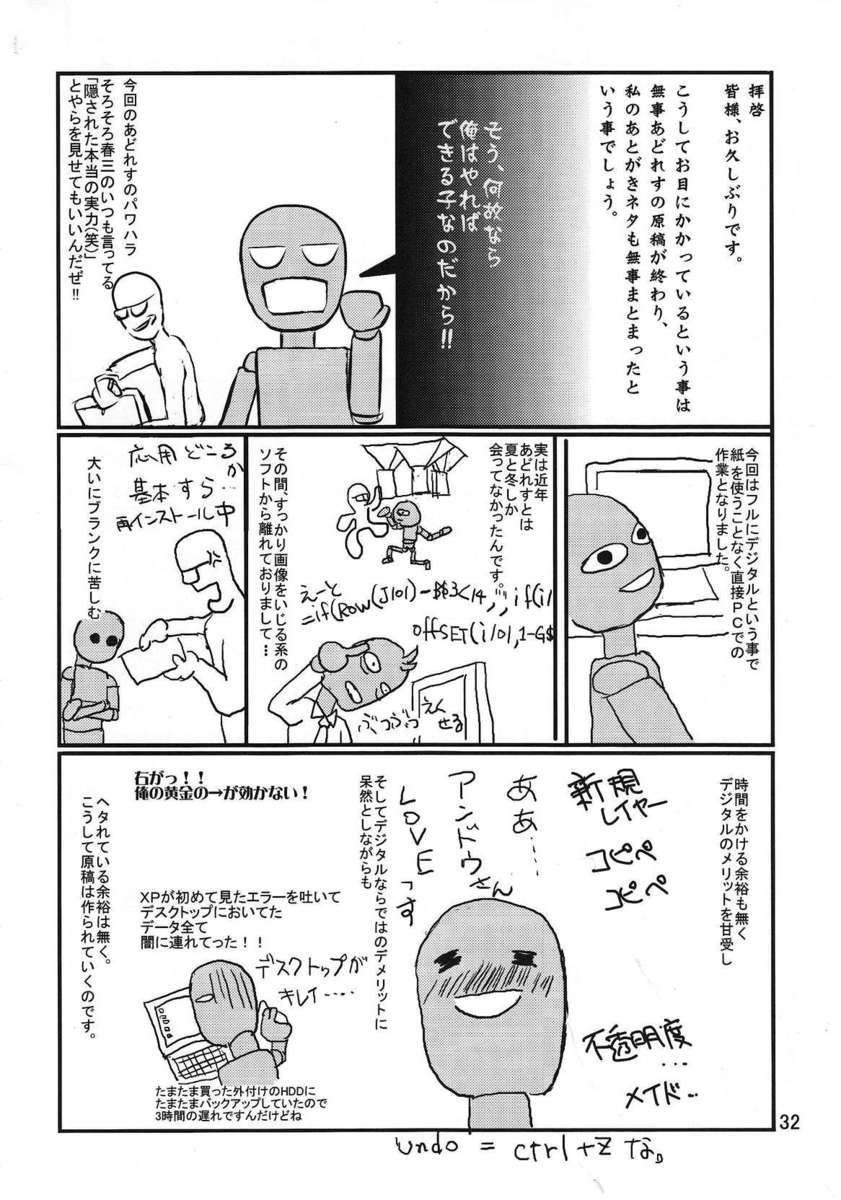 拝啓
皆様、お久しぶりです。
こうしてお目にかかっているという事は
無事あどれすの原稿が終わり、
私のあとがきネタも無事まとまったと
いう事でしょう。
そう、何故なら
俺はやれば
できる子なのだから!!
今回のあどれすのパワハラ
そろそろ春三のいつも言ってる
「隠された本当の実力(笑)」
とやらを見せてもいいんだぜ!!
今回はフルにデジタルという事で
紙を使うことなく直接PCでの
作業となりました。
実は近年
あどれすとは
夏と冬しか
会ってなかったんです。
その間、すっかり画像をいじる系の
ソフトから離れておりまして…
えーと
=if(ROW(J101)-$$3<14,"",if(i1
OffSET(i101,1-G$
ぶつぶつ
えくせる
応用どころか
基本すら…
再インストール中
大いにブランクに苦しむ
時間をかける余裕も無く
デジタルのメリットを甘受し
新規
レイヤー
コピペ
コピペ
ああ…
アンドウさん
LOVEっす
不透明度
…
メイド…
そしてデジタルならではのデメリットに
呆然としながらも
右がっ!!
俺の黄金の→が効かない!
XPが初めて見たエラーを吐いて
デスクトップにおいてた
データ全て
闇に連れてった!!
デスクトップが
キレイ…
たまたま買った外付けのHDDに
たまたまバックアップしていたので
3時間の遅れですんだけどね
ヘタれている余裕は無く。
こうして原稿は作られていくのです。
undo = ctrl+Z な。
32